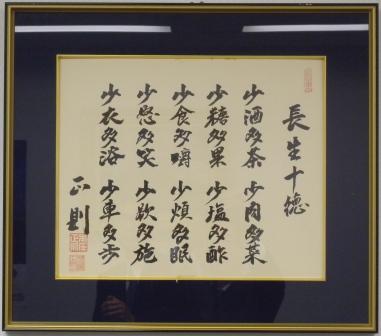 長生十徳
少酒多茶 少肉多菜
少糖多果 少塩多酢
少食多嚼 少煩多眠
少怒多笑 少欲多施
少衣多浴 少車多歩
正則